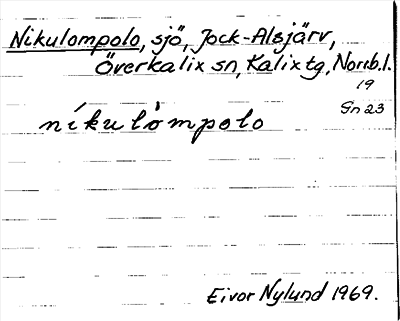 Nikulompolo, sjö, Jock-Alsjärv,
Överkalix sn, Kalix tg, Norrb. l.
19
Gn 23
níkulòmpolo
Eivor Nylund 1969.